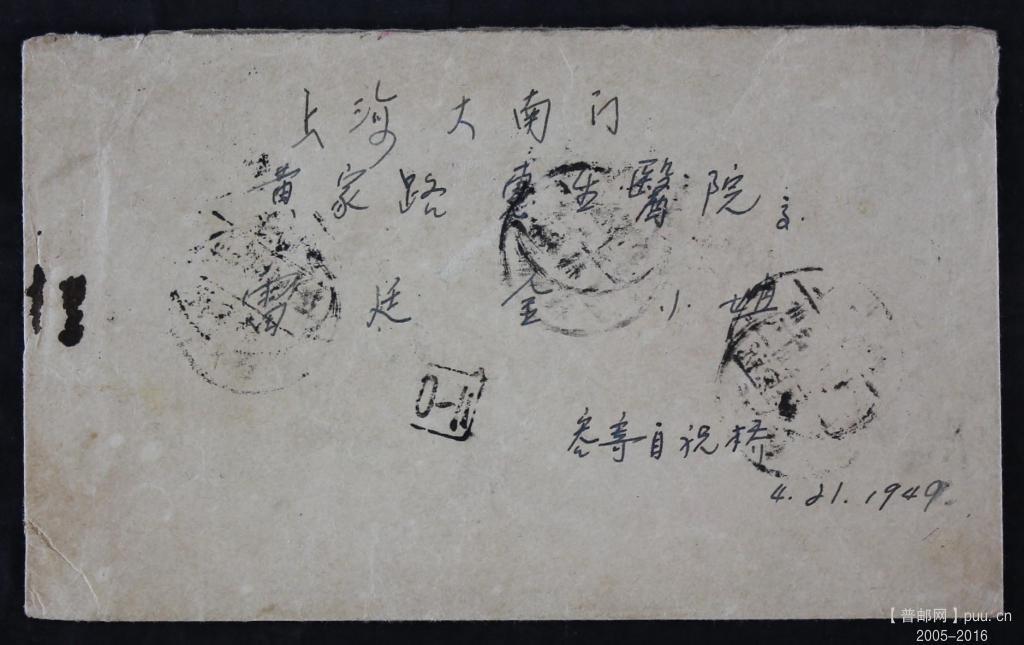 上海大南门
黄家路惠生醫院
雷廷全小姐
寿自祝桥
4.21.1949.
0-11
【普邮网】puu.cn
2005-2016